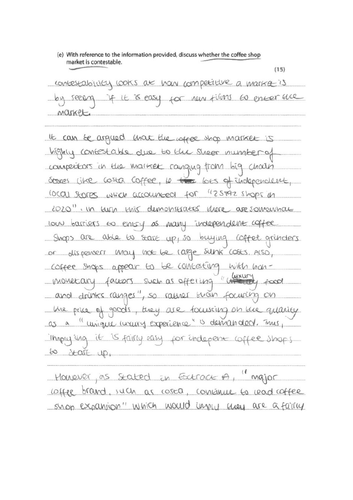 (e) With reference to the information provided, discuss whether the coffee shop
market is contestable.
(15)
contestability looks at how competitive a market is
by seeing if it is easy for new firms to enter the
market.
It can be argued that the coffee shop market is
highly contestable due to the sheer number of
competitors in the market ranging from big chain
stores like costa coffee, to lots of independent,
local stores which accounted for shops in
2020". In turn this demonstrates there are somewhat
low barriers to entry as many independent coffee
shops are able to start up, so buying coffee grinders
or dispensers may not be large sunk costs. Also,
coffee shops appear to be contesting with non-
monetary factors such as offering "luxury food
and drinks ranges", so rather than focusing on
the price of goods, they are focusing on the quality
as a "unique luxury experience" is demanded. Thus,
implying it is fairly easy for indepent coffee shops
to start up.
However, as stated in Extract A, "major
coffee brand, such as costa, continue to lead coffee
shop expansion" which would imply they are a fairly